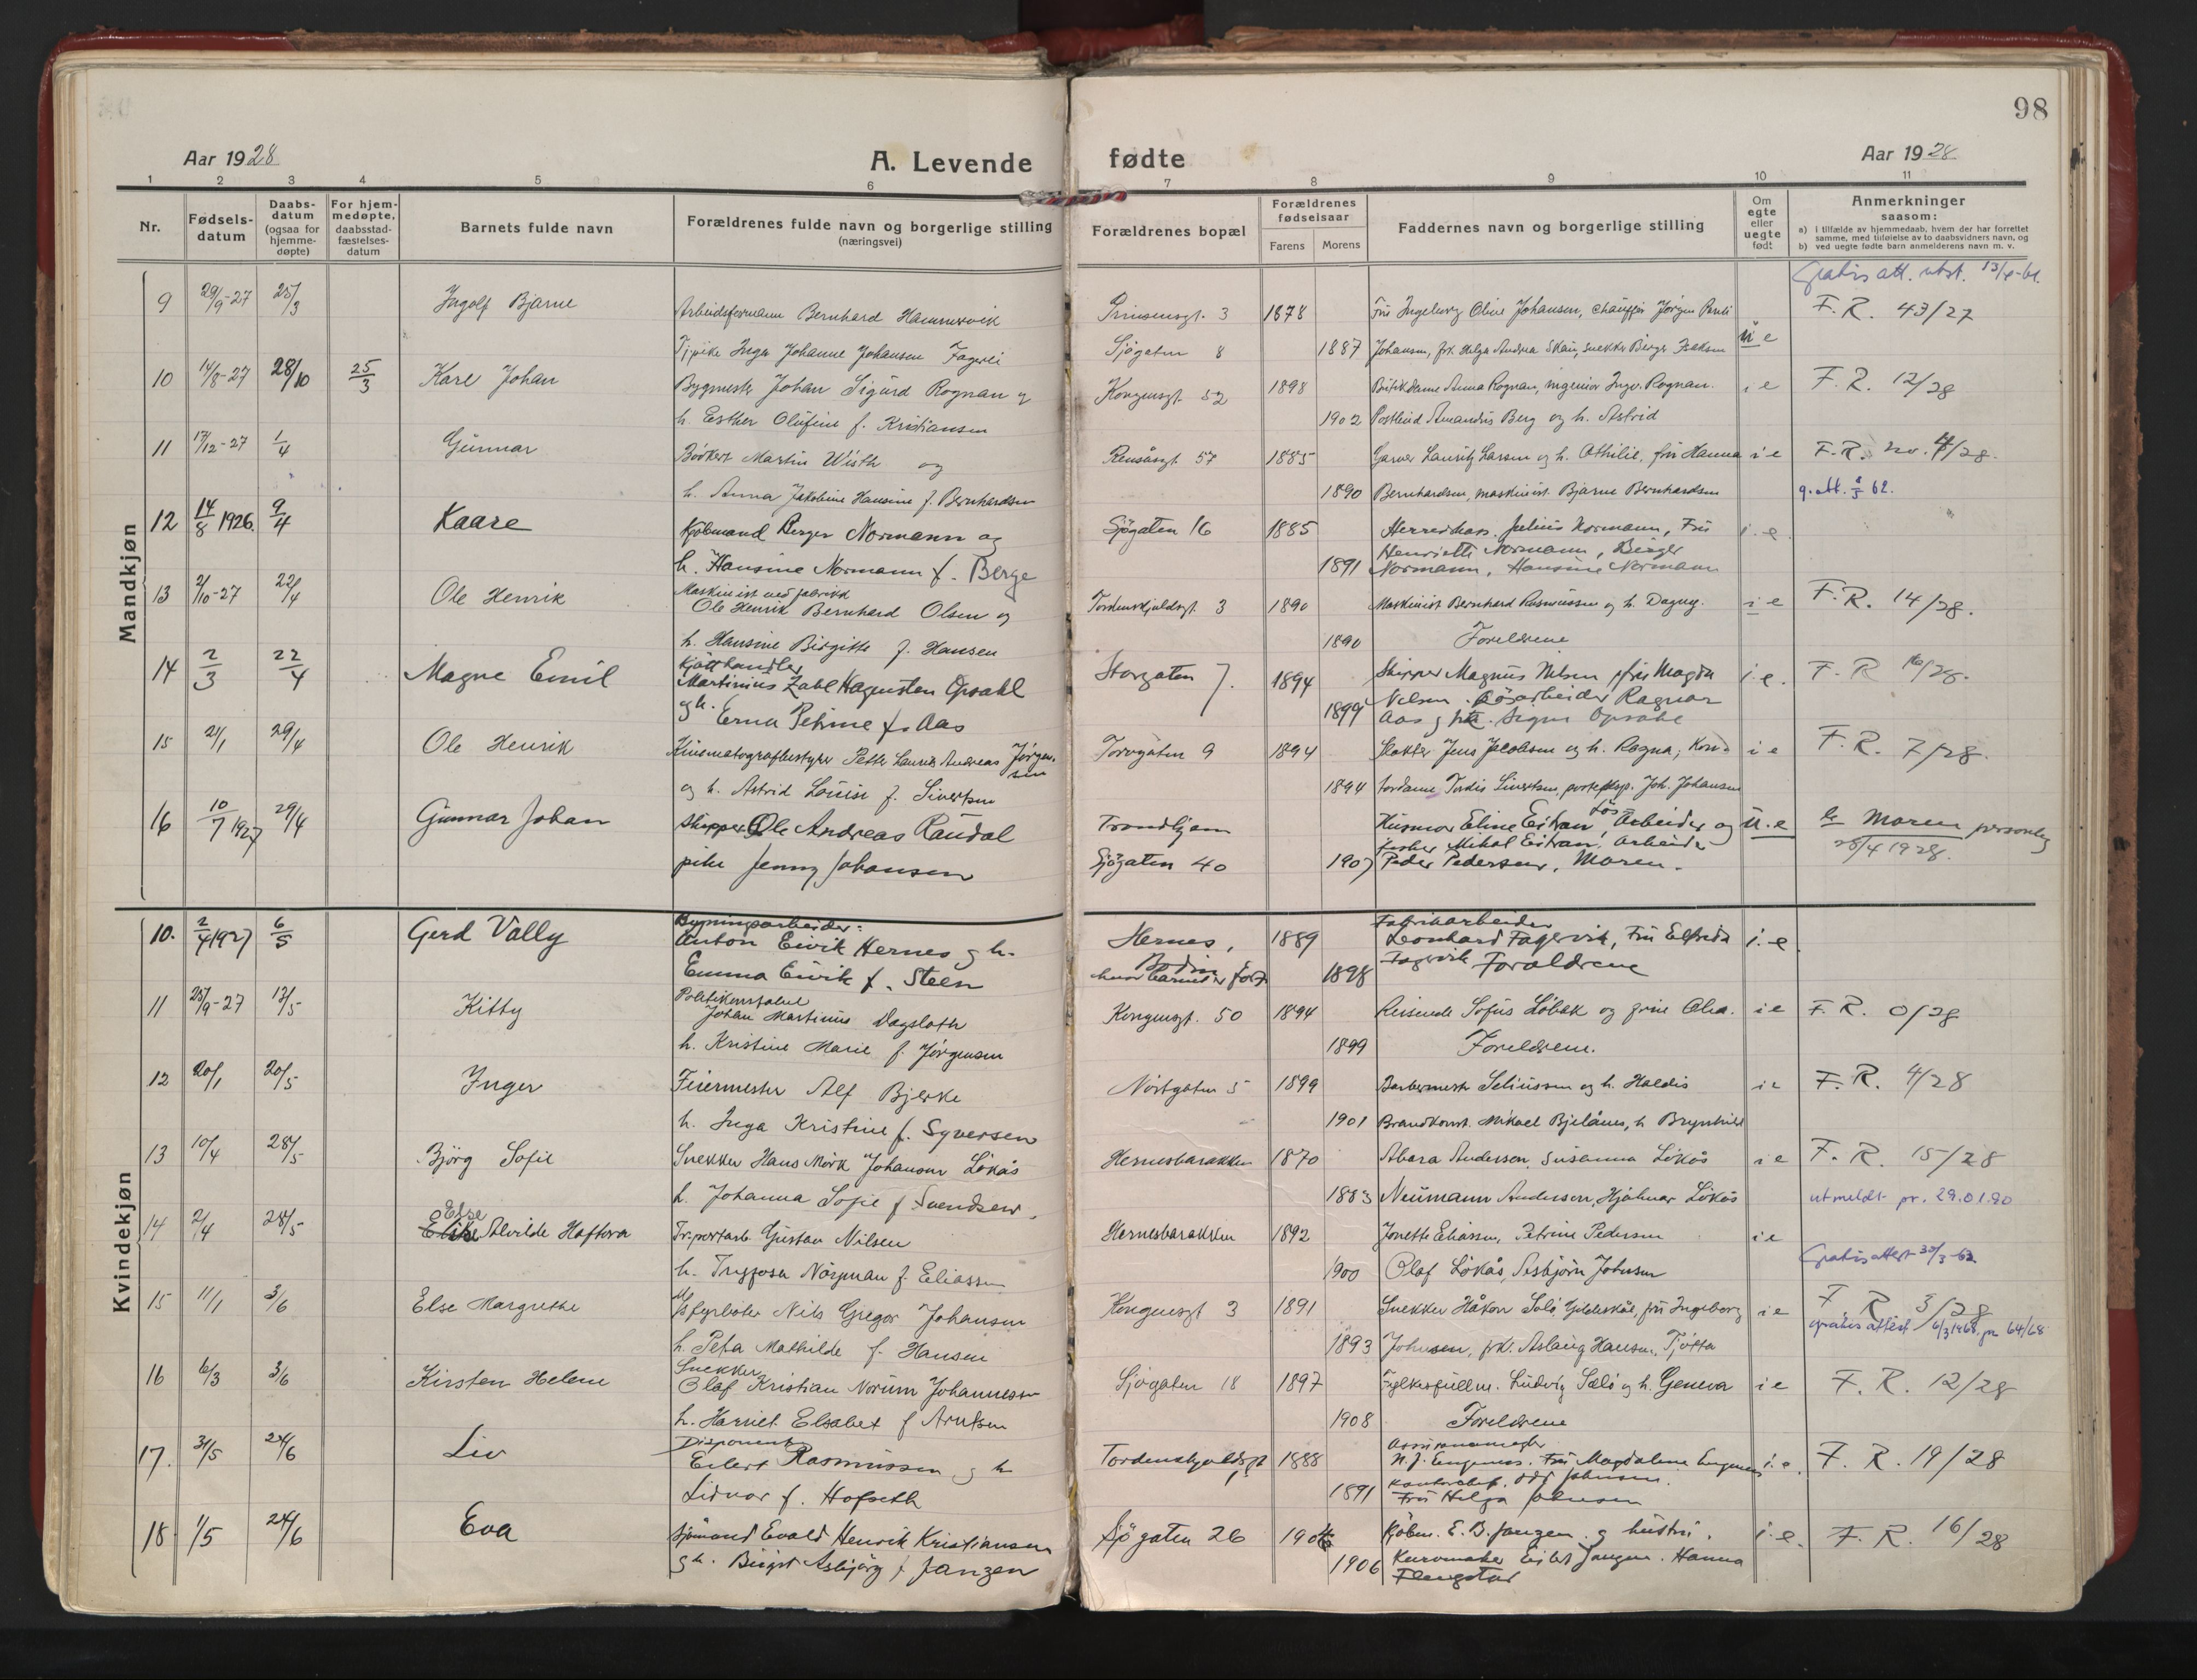 98
Aar 1928
A. Levende
fødte
Aar 1928
1 2 3 4 5 6 7 8 9 10 11
Nr.
Fødsels-datum
Daabs-datum (ogsaa for hjemme-døpte)
For hjem-medøpte, daabsstad-fæstelses-datum
Barnets fulde navn
Forældrenes fulde navn og borgerlige stilling
(næringsvei)
Forældrenes bopæl
Forældrenes fødselsaar
Farens Morens
Faddernes navn og borgerlige stilling
Om egte eller uegte født
Anmerkninger
saasom:
a) i tilfælde av hjemmedaab, hvem der har forrettet samme, med tilføielse av to daabsvidners navn, og
b) ved uegte fødte barn anmelderens navn m. v.
Mandkjøn
Gratis att. utst.
9 29/9-27 25/3 Ingolf Bjarne Arbeidsformann Bernhard Hammervik Prinsensgt. 3 1878 Fru Ingeborg Oline Johansen, chauffør Jørgen F.R. 43/27
Inga Johanne Johansen Sjøgaten 8 1887 Johansen, frk. Helga Andrea Skau, snekker Birger u e
10 14/8-27 28/10 25/3 Kare Johan Bygmester Johan Sigurd Rognan og Kongensgt. 52 1898 Anna Rognan, ingeniør Ingv. Rognan. i e F.R. 12/28
h. Esther Olufine f. Kristiansen 1902 Amandus Berg og h. Astrid
11 17/12-27 1/4 Gunnar Martin Wisth og Rensåsgt. 57 1885 Garver Lauritz Larsen og h. Othilie, fru Hanna i e F.R. no. 4/28.
h. Anna Jakobine Hansine f. Bernhardsen 1890 Bernhardsen, maskinist Bjarne Bernhardsen g. att. 62.
12 14/8 1926. 9/4 Kaare Kjøbmand Berger Normann og Sjøgaten 16 1885 Julius Normann, Fru i.e.
h. Hansine Normann f. Berge 1891 Henriette Normann, Birger
Normann, Hansine Normann
13 2/10-27 22/4 Ole Henrik Maskinist ved fabrikk
Ole Henrik Bernhard Olsen og Tordenskjoldsgt. 3 1890 Maskinist Bernhard Rasmussen og h. Dagny. i e F.R. 14/28.
h. Hansine Birgitte f. Hansen 1890 Foreldrene
14 2/3 22/4 Magne Emil Kjøtthandler
Martinius Zahl Hagensten Opsahl Storgaten 7. 1894 Skipper Magnus Nilsen, fru Magda i.e. F.R. 16/28.
og h. Erna Petrine f. Aas 1899 Nilsen. Ragnar
Aas og Signe Opsahl
15 2/1 29/4 Ole Henrik Kinematografbestyrer Petter Laurits Andreas Jørgensen Torvgaten 9 1894 Slakter Jens Jacobsen og h. Ragna, Kon- i e F.R. 7/28.
og h. Astrid Louise f. Sivertsen 1894 tordame Tordis Sivertsen, Joh. Johansen
16 10/7 1927 29/4 Gunnar Johan Skipper Ole Andreas Raudal Trondhjem Husmor Eline Eitran, Løs-Arbeider og u.e Moren personlig
pike Jenny Johansen Sjøgaten 40 1907 Fisker Mikal Eitran, Arbeider 28/4 1928.
Peder Pedersen, Moren.
Kvindekjøn
10. 2/4 1927 6/5 Gerd Vally Bygningsarbeider:
Anton Eivik Hernes og h. Hernes, Bodin 1889 Fabrikarbeider
Leonhard Fagervik, Fru Elfrida i.e.
Emma Eivik f. Steen hvor barnet er født 1898 Fagervik Foraldrene
11 25/9-27 13/5 Kitty Politikonstabel
Johan Martinus Dagsloth Kongensgt. 50 1894 Reisende Sofus Løbak og frue Olea. i e F.R. 0/28
h. Kristine Marie f. Jørgensen 1899 Foreldrene.
12 20/1 20/5 Inger Feiermester Alf Bjerke 1899 Barbermester Seliussen og h. Haldis i e F.R. 4/28
h. Inga Kristine f. Syversen 1901 Brandkonst. Mikael Bjelånes, h. Brynhild
13 10/4 28/5 Bjørg Sofie Snekker Hans Mørk Johansen Løkås Hernesbarakken 1870 Abara Andersen, Susanna Løkås i e F.R. 15/28
h. Johanna Sofie f. Svendsen 1883 Neumann Andersen, Hjalmar Løkås utmeldt pr. 29.01.90
14 2/4 28/5 Else Alvilde Haftora Tr.portarb. Gustav Nilsen Hernesbarakken 1892 Jonette Eliassen, Petrine Pedersen i e
h. Trygfosa Nøisman f. Eliassen 1900 Olaf Løkås, Asbjørn Johnsen Gratis attest 30/3-62
15 11/1 3/6 Else Margrethe fyrbøter Nils Gregor Johansen Kongensgt 3 1891 Snekker Håkon Gildeskål, fru Ingeborg i e F.R. 3/28
gratis attest 6/3 1968 64/68
h. Peta Mathilde f. Hansen 1893 Johnsen, frk. Aslaug Hansen, Tjøtta
16 6/3 3/6 Kirsten Helene Snekker
Olaf Kristian Norum Johannessen Sjøgaten 18 1897 Ludvig Sælø og h. Geneva i e F.R. 12/28
h. Harriet Elsabet f. Arntsen 1908 Foreldrene
17. 31/5 24/6 Liv Disponent
Eilert Rasmussen og h Tordenskjoldsgt 1888 N.J. Engenes. Fru Magdalene Engenes i.e. F.R. 19/28
Lidvor f. Hofseth 1891 Odd Johnsen.
Fru Helga Johnsen
18 1/5 24/6 Eva Sjømand Evald Henrik Kristiansen Sjøgaten 26 1904 Kjøbm. E.B. Janzen og hustru. i.e. F.R. 16/28
og h. Birgit Asbjørg f. Janzen 1906 Eilert Jansen. Hanna